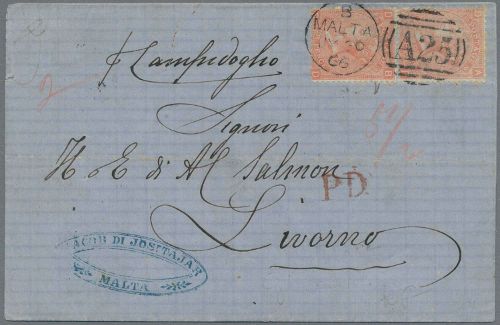 B
MALTA
66
A25
p Campidoglio
Signori
H E di A Salmon
P.D.
Livorno
JACOB DI JOSITAJAR
MALTA